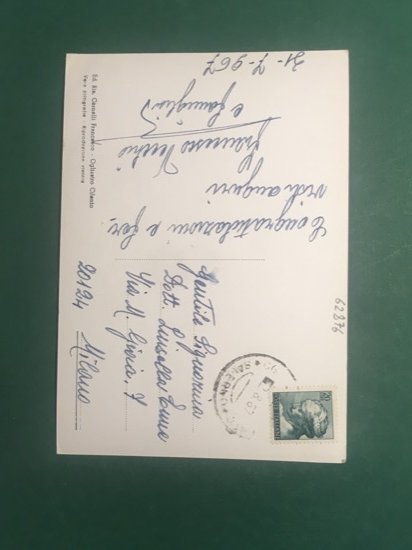 Ed. Ris. Carnelli Francesco - Ogliastro Cilento
Vera fotografia - Riproduzione vietata
31-7-967
Congratulazioni e fer-
vidi auguri
Francesco
e famiglia
Gentile Signorina
Dott.
Via M. Gioia, 7
20124 Milano
62876
SALERNO